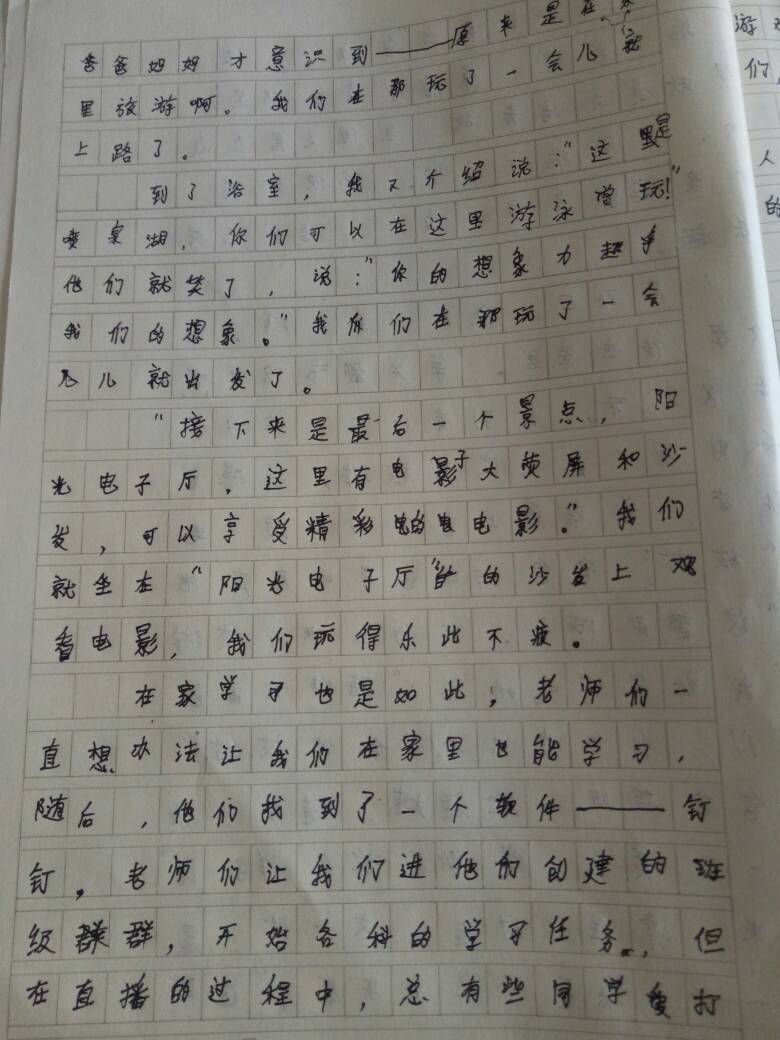 爸爸妈妈才意识到——原来是在家
里旅游啊。我们在那玩了一会儿就
上路了。
到了浴室，我又介绍说：“这里是
喷泉湖，你们可以在这里游泳赏玩！”
他们就笑了，说：“你的想象力超乎
我们的想象。”我们在那玩了一会
儿就出发了。
“接下来是最后一个景点，阳
光电子厅，这里有电影子大荧屏和沙
发，可以享受精彩的电影。”我们
就坐在“阳光电子厅”的沙发上观
看电影，我们玩得乐此不疲。
在家学习也是如此，老师们一
直想办法让我们在家里也能学习，
随后，他们找到了一个软件——钉
钉。老师们让我们进他们创建的班
级群，开始各科的学习任务，但
在直播的过程中，总有些同学爱打
游戏
们，
人
的